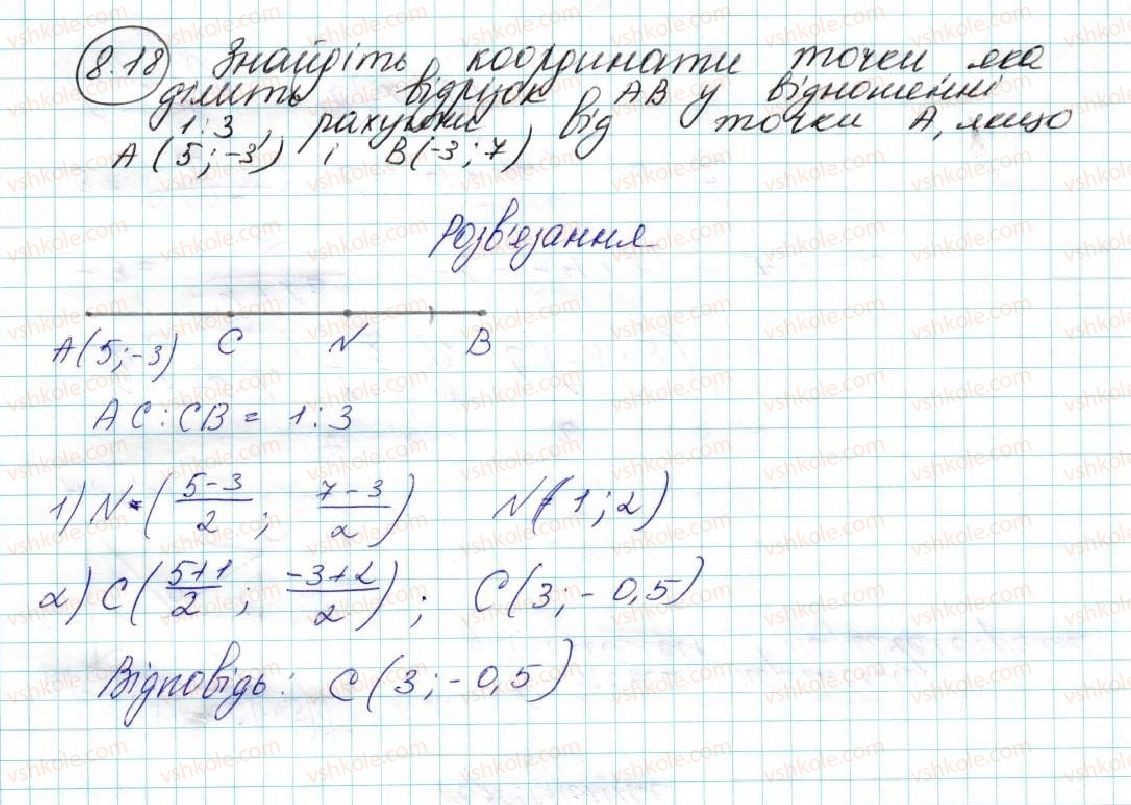 8.18 Знайдіть координати точки, яка
ділить відрізок AB у відношенні
1:3, рахуючи від точки A, якщо
A(5;-3) і B(-3;7)
Розв'язання
A(5;-3) C N B
AC:CB = 1:3
1) N=(\frac{5-3}{2}; \frac{7-3}{2}) N(1;2)
2) C(\frac{5+1}{2}; \frac{-3+2}{2}); C(3;-0,5)
Відповідь: C(3;-0,5)